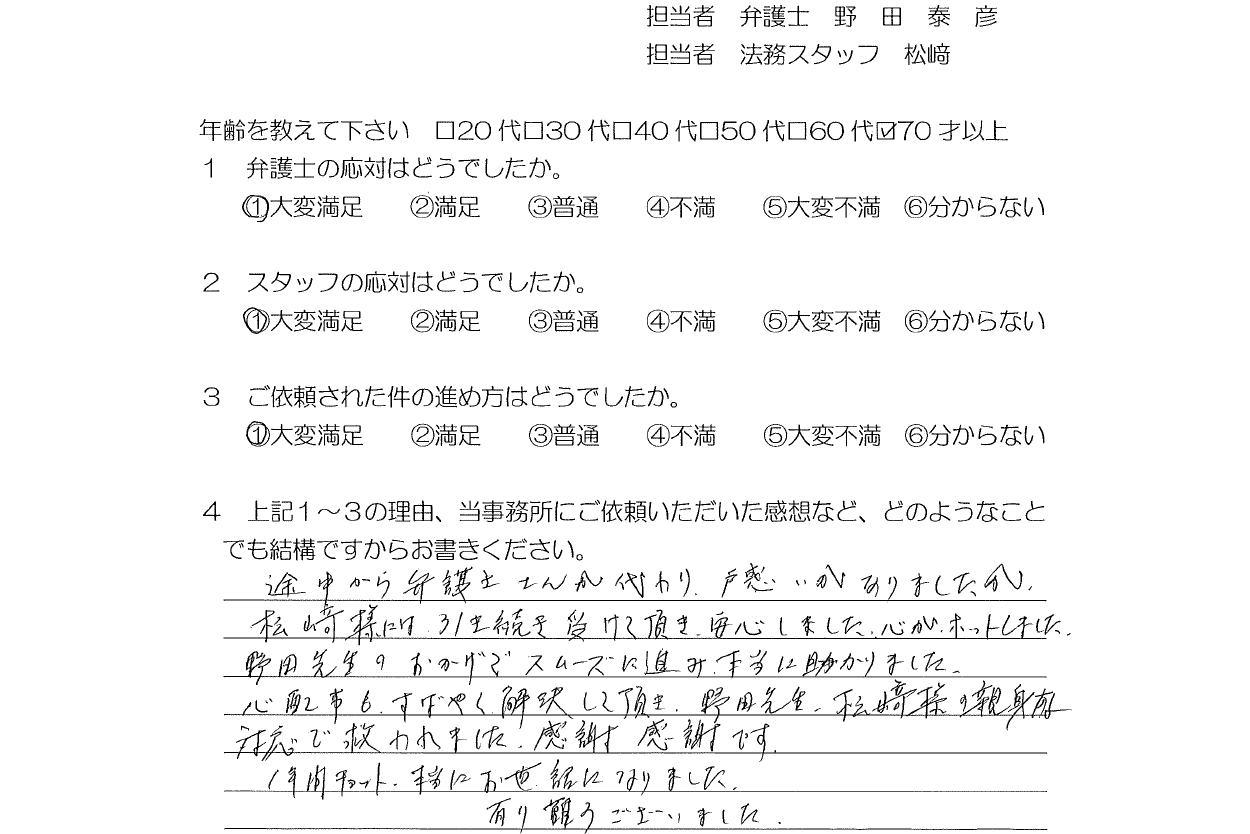 担当者 弁護士 野 田 泰 彦
担当者 法務スタッフ 松﨑
年齢を教えて下さい □20代□30代□40代□50代□60代☑70才以上
1 弁護士の応対はどうでしたか。
①大変満足 ②満足 ③普通 ④不満 ⑤大変不満 ⑥分からない
2 スタッフの応対はどうでしたか。
①大変満足 ②満足 ③普通 ④不満 ⑤大変不満 ⑥分からない
3 ご依頼された件の進め方はどうでしたか。
①大変満足 ②満足 ③普通 ④不満 ⑤大変不満 ⑥分からない
4 上記1~3の理由、当事務所にご依頼いただいた感想など、どのようなこと
でも結構ですからお書きください。
途中から弁護士さんが代わり、戸惑いがありましたが、
松﨑様には引き続き受けて頂き、安心しました。心がホットしました。
野田先生のおかげでスムーズに進み、本当に助かりました。
心配事も、すばやく解決して頂き、野田先生、松﨑様の親身な
対応で救われました。感謝、感謝です。
1年間チョット、本当にお世話になりました。
有り難うございました。